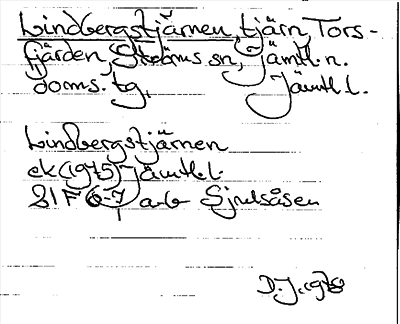 Lindbergstjärnen, tjärn, Tors-
fjärden, Ströms sn, Jämtl. n.
doms. tg, Jämtl l.
Lindbergstjärnen
ek (1975) Jämtl. l.
21F 6-7 a-b Sjulsåsen
D.J. 1978